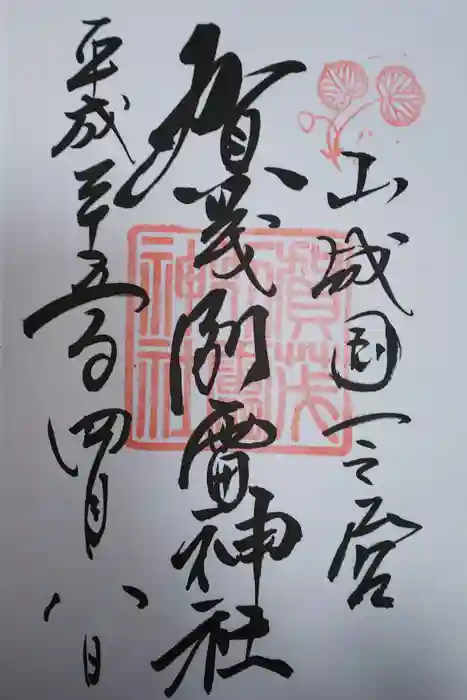 山城国一之宮
賀茂別雷神社
平成三十五年四月八日
賀茂別雷神社